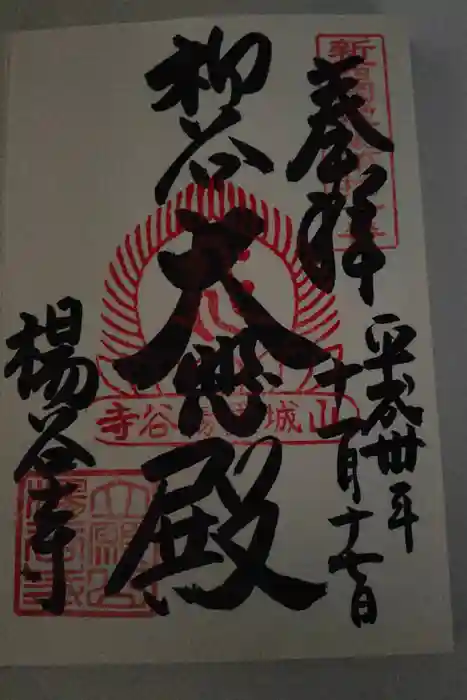 奉拝
平成卅年
十一月十七日
柳谷
大悲殿
山城國楊谷寺
楊谷寺